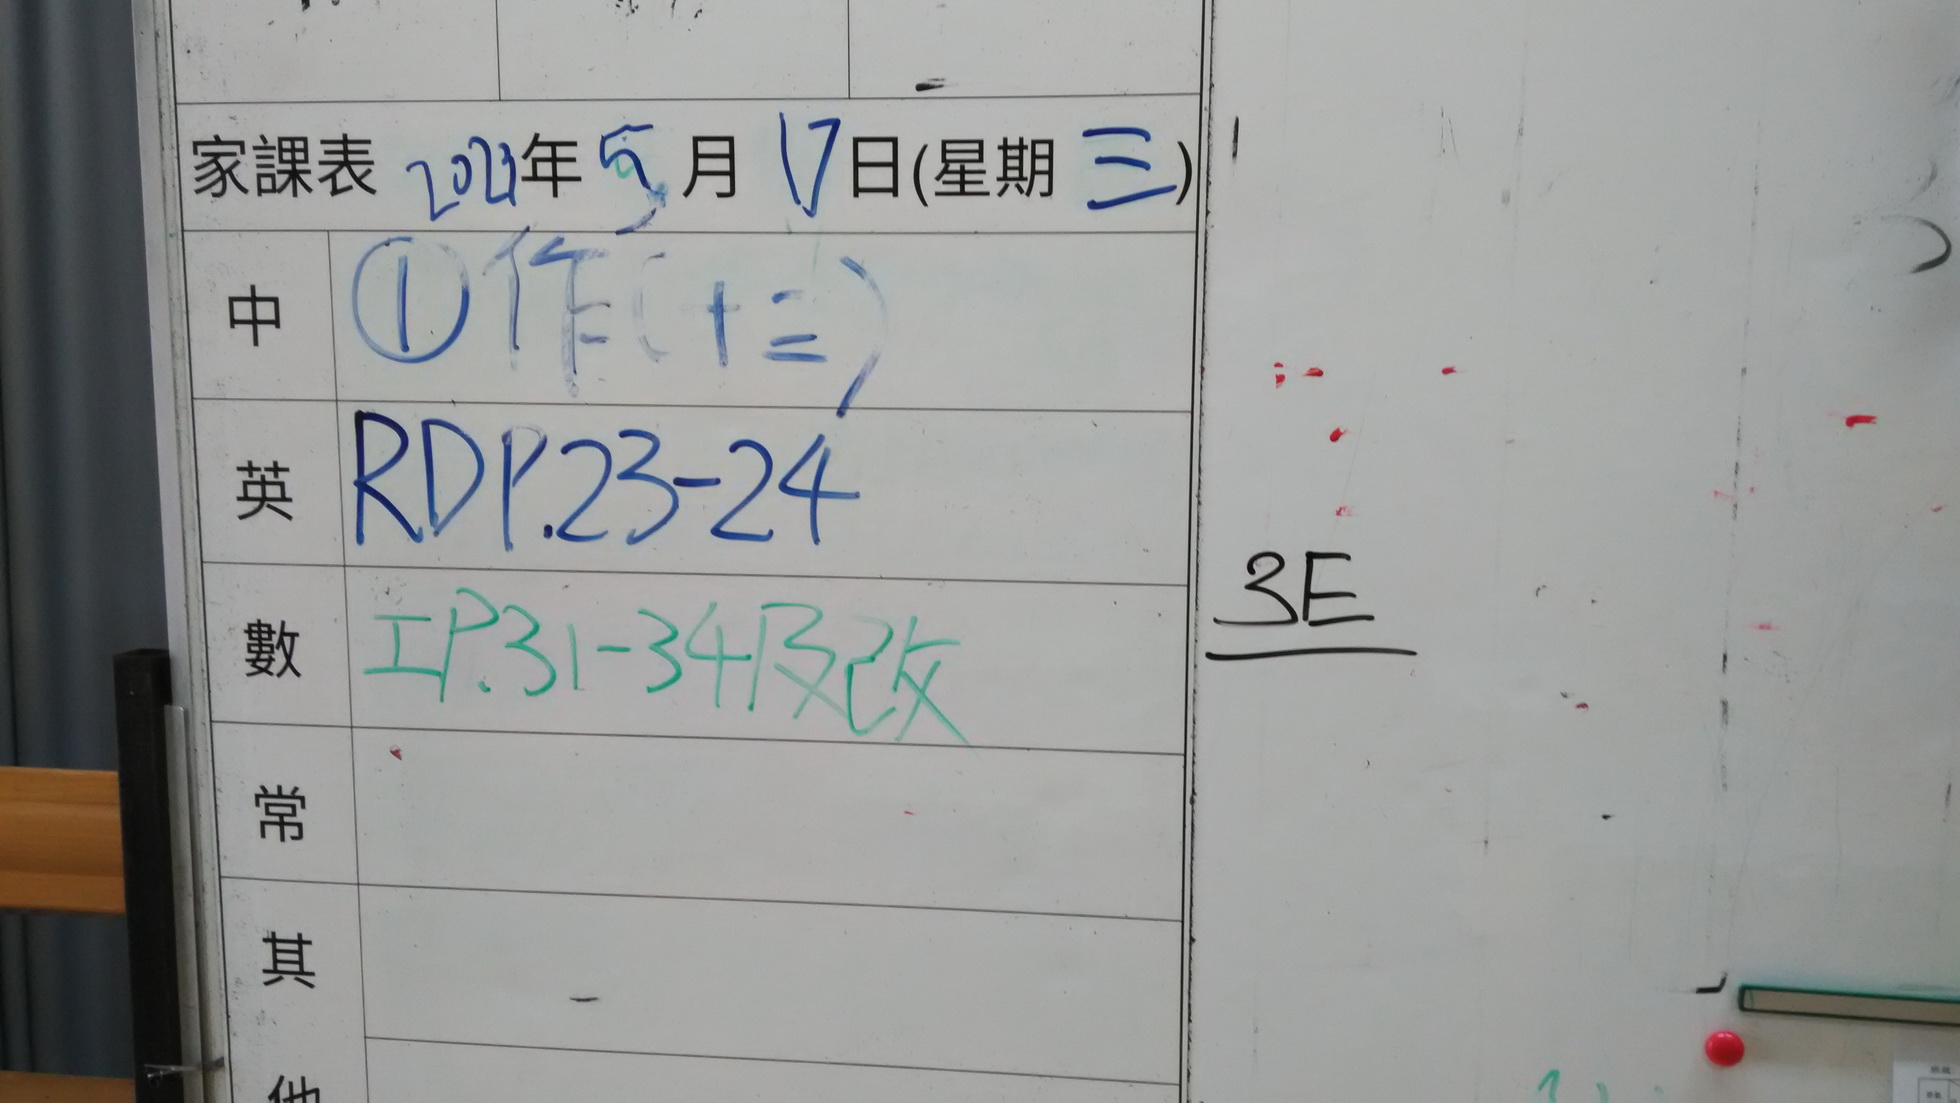 家課表 2023年 5 月 17 日(星期 三)
中 ①作(十二)
英 RDP.23-24
數 工P.31-34及改
3E
常
其
他